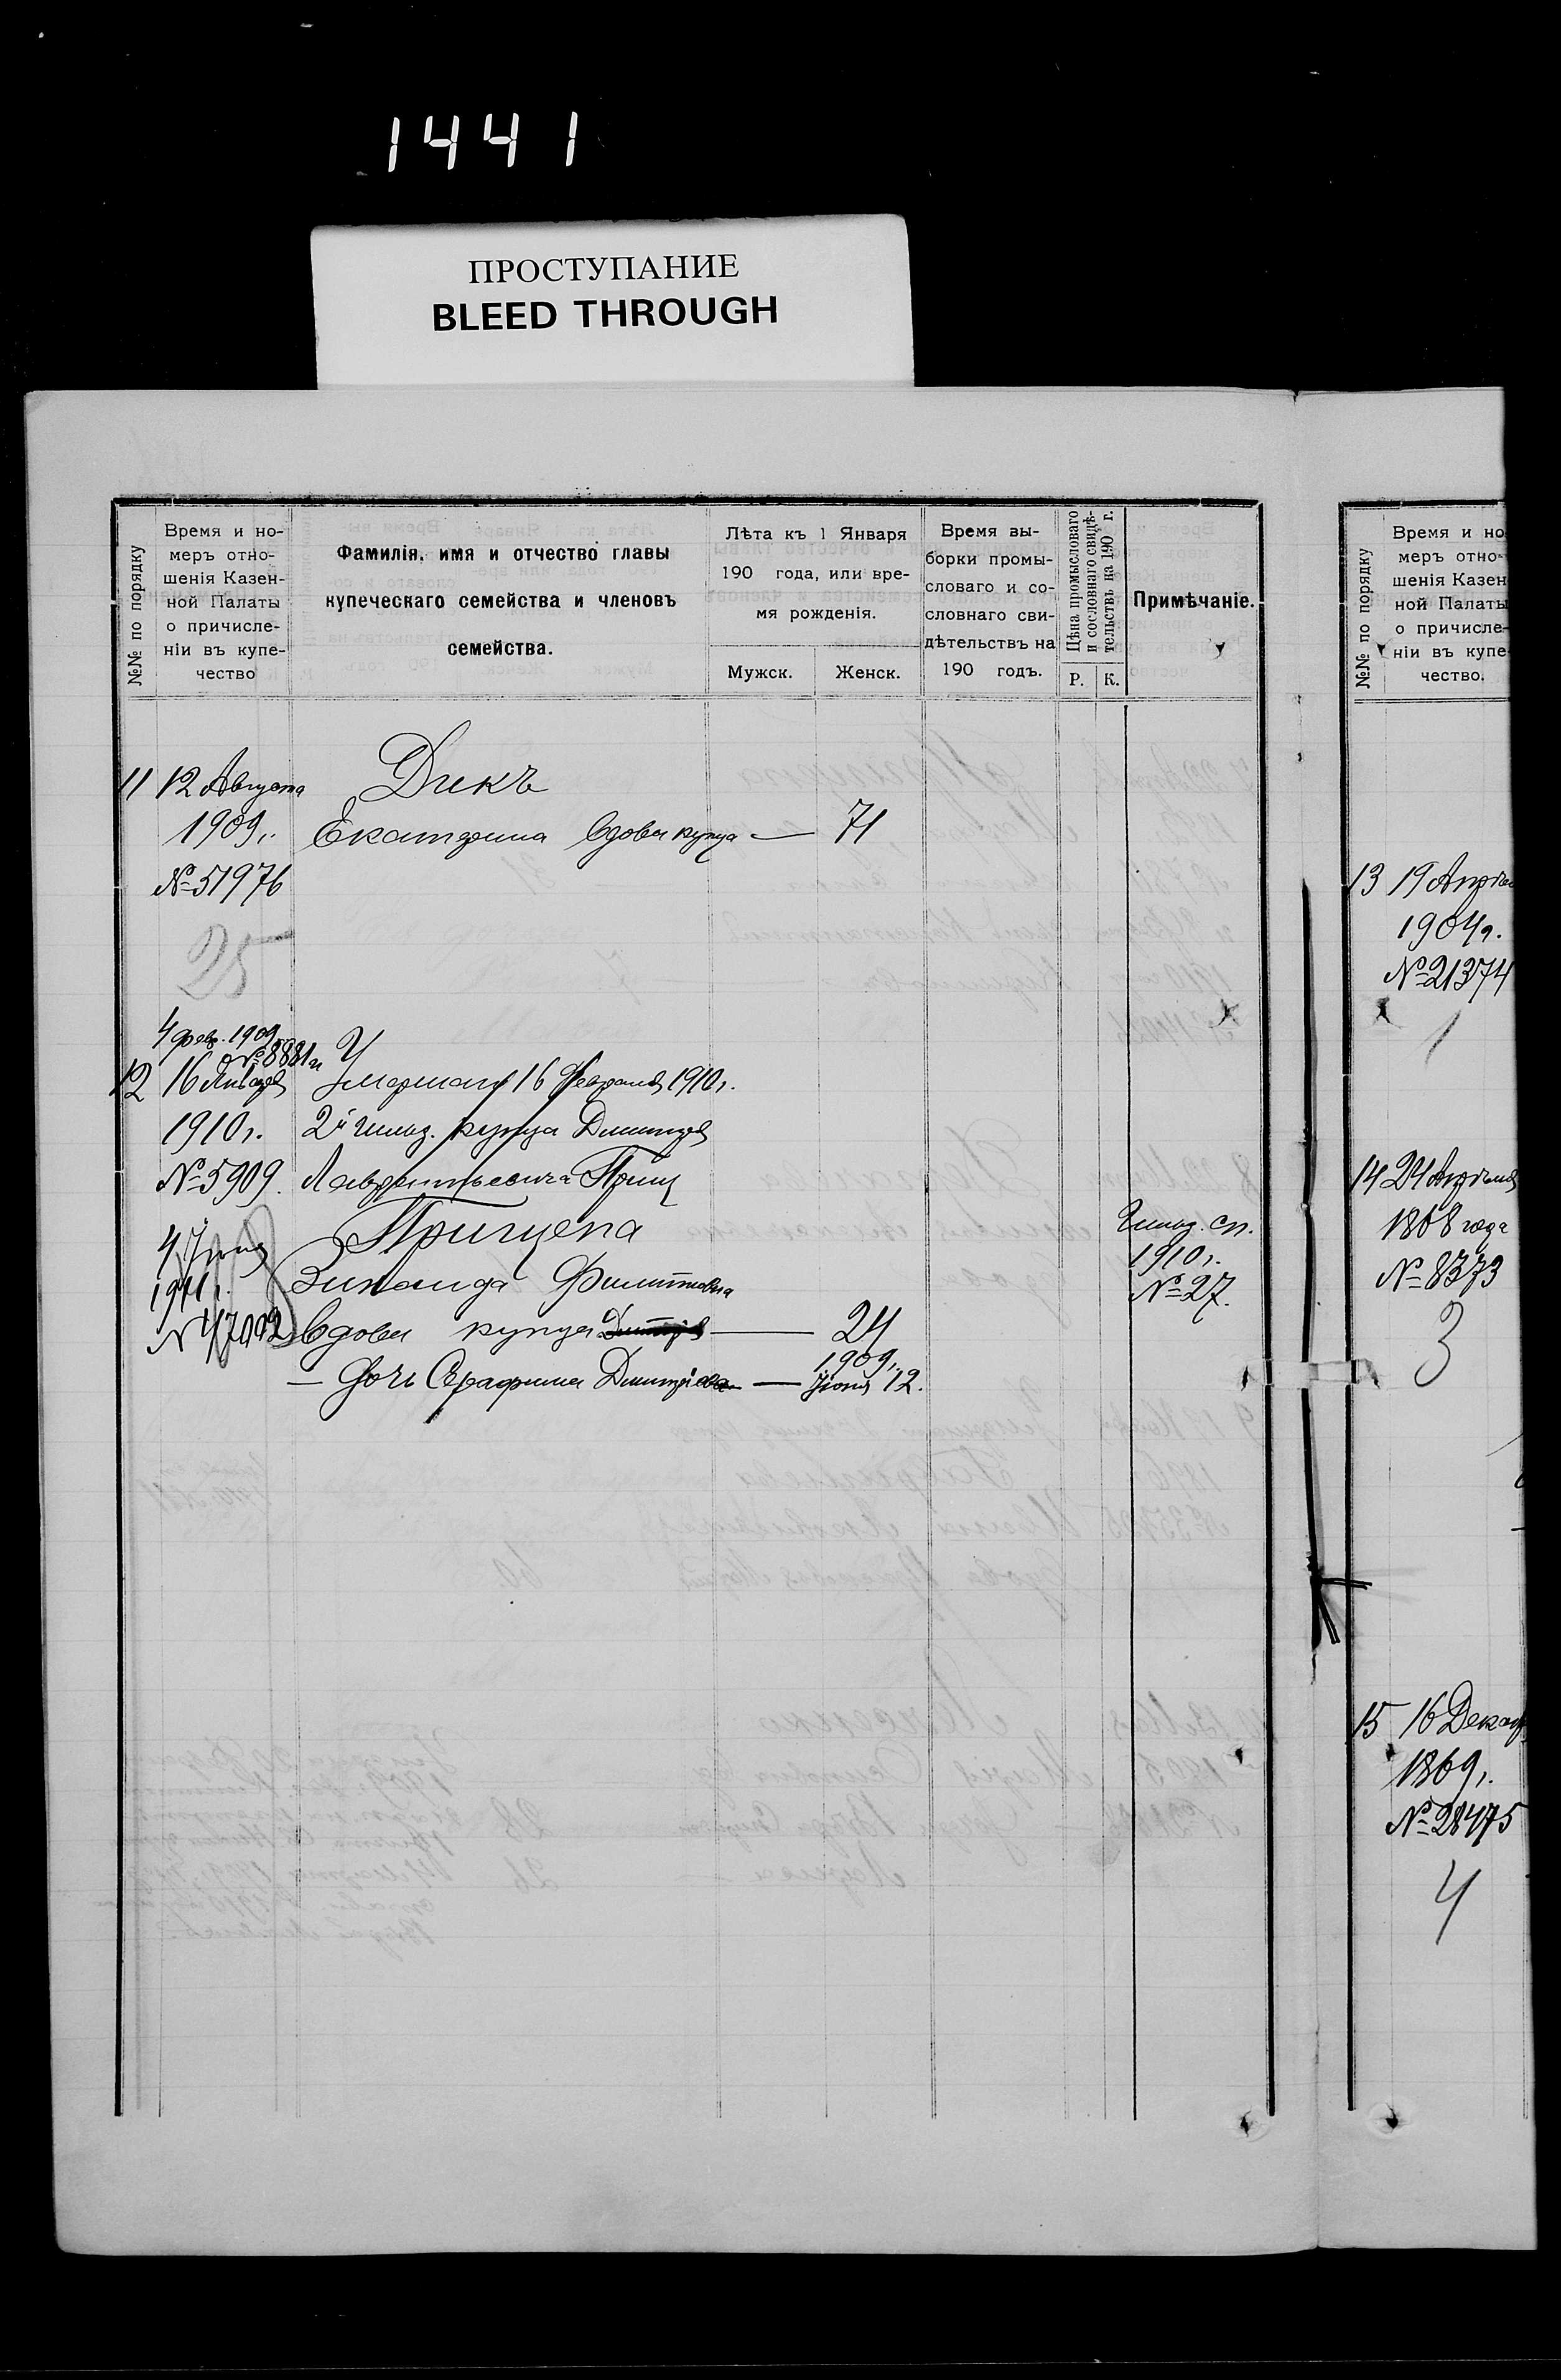 1441
ПРОСТУПАНИЕ
BLEED THROUGH
№№ по порядку
Время и но-
меръ отно-
шенія Казен-
ной Палаты
о причисле-
ніи въ купе-
чество
Фамилія, имя и отчество главы
купеческаго семейства и членовъ
семейства.
Лѣта къ 1 Января
190 года, или вре-
мя рожденія.
Мужск.
Женск.
Время вы-
борки промы-
словаго и со-
словнаго сви-
дѣтельствъ на
190 годъ.
Цѣна промысловаго
и сословнаго свидѣ-
тельствъ на 190 г.
Р.
К.
Примѣчаніе.
11 12 Августа
1909г.
№51976
25
Дикъ
Екатерина вдова купца — 71
4 фев. 1909
№8881 и
12 16 Января
1910г.
№5909.
4 Іюня
1911г.
№47002
Умершаго 16 Февраля 1910г.
2й гильд. купца Димитрія
Лаврентьевича Приц
Прицепа
Зинаида Филипповна
вдова купца Димитрія — 24
— дочь Серафима Димитріева — 1909г.
Іюня 12.
Гильд. сп.
1910г.
№27.
№№ по порядку
Время и но
меръ отно-
шенія Казен
ной Палаты
о причисле-
ніи въ купе-
чество.
13 19 Апрѣл
1904г.
№21374
1
14 24 Апрѣля
1868 года
№8373
3
15 16 Декаб
1869г.
№28475
4